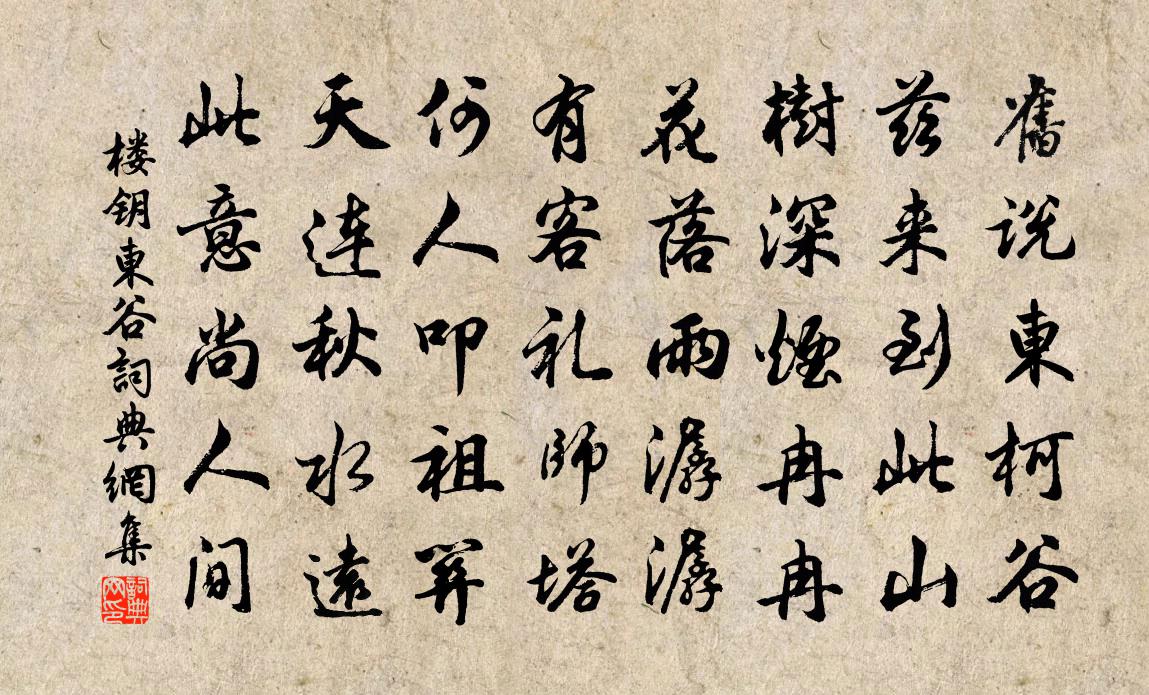 舊说東柯谷
兹来到此山
樹深煙冉冉
花落雨潺潺
有客礼師塔
何人叩祖關
天連秋水遠
此意尚人間
楼钥東谷詞典網集
詞典网印